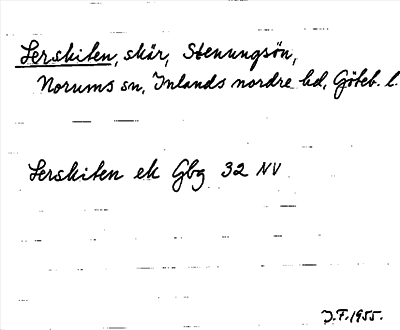 Lerskiten, skär, Stenungsön,
Norums sn, Inlands nordre hd, Göteb. l.
Lerskiten ek Gbg 32 NV
J.F. 1955.